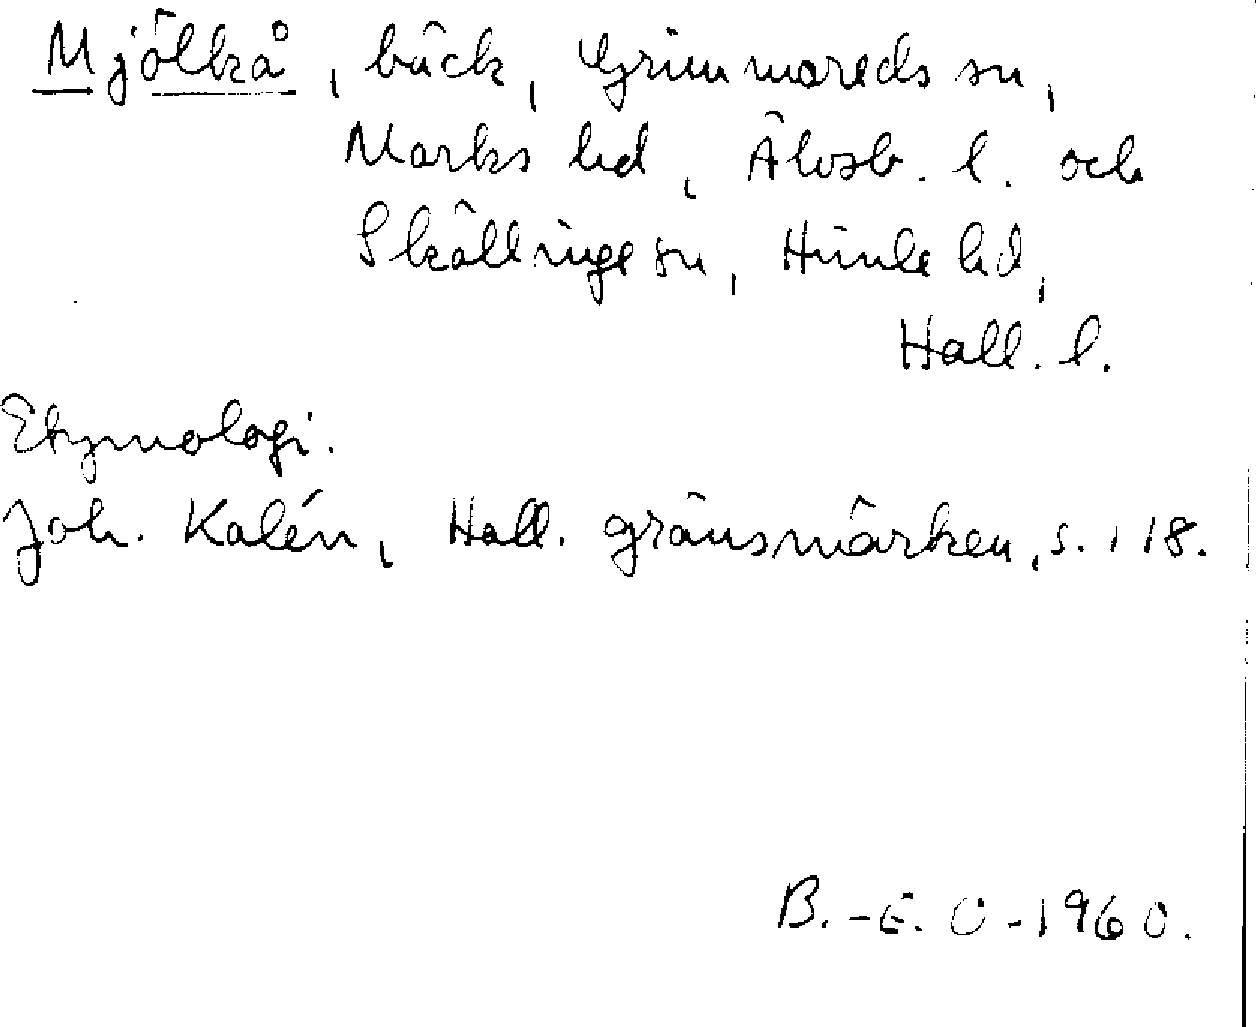 Mjölkå, bäck, Grimmareds sn,
Marks hd, Älvsb. l. och
Skällinge sn, Himle hd,
Hall. l.
Etymologi.
Joh. Kalén, Hall. gränsmärken, s. 118.
B.-E. O-1960.